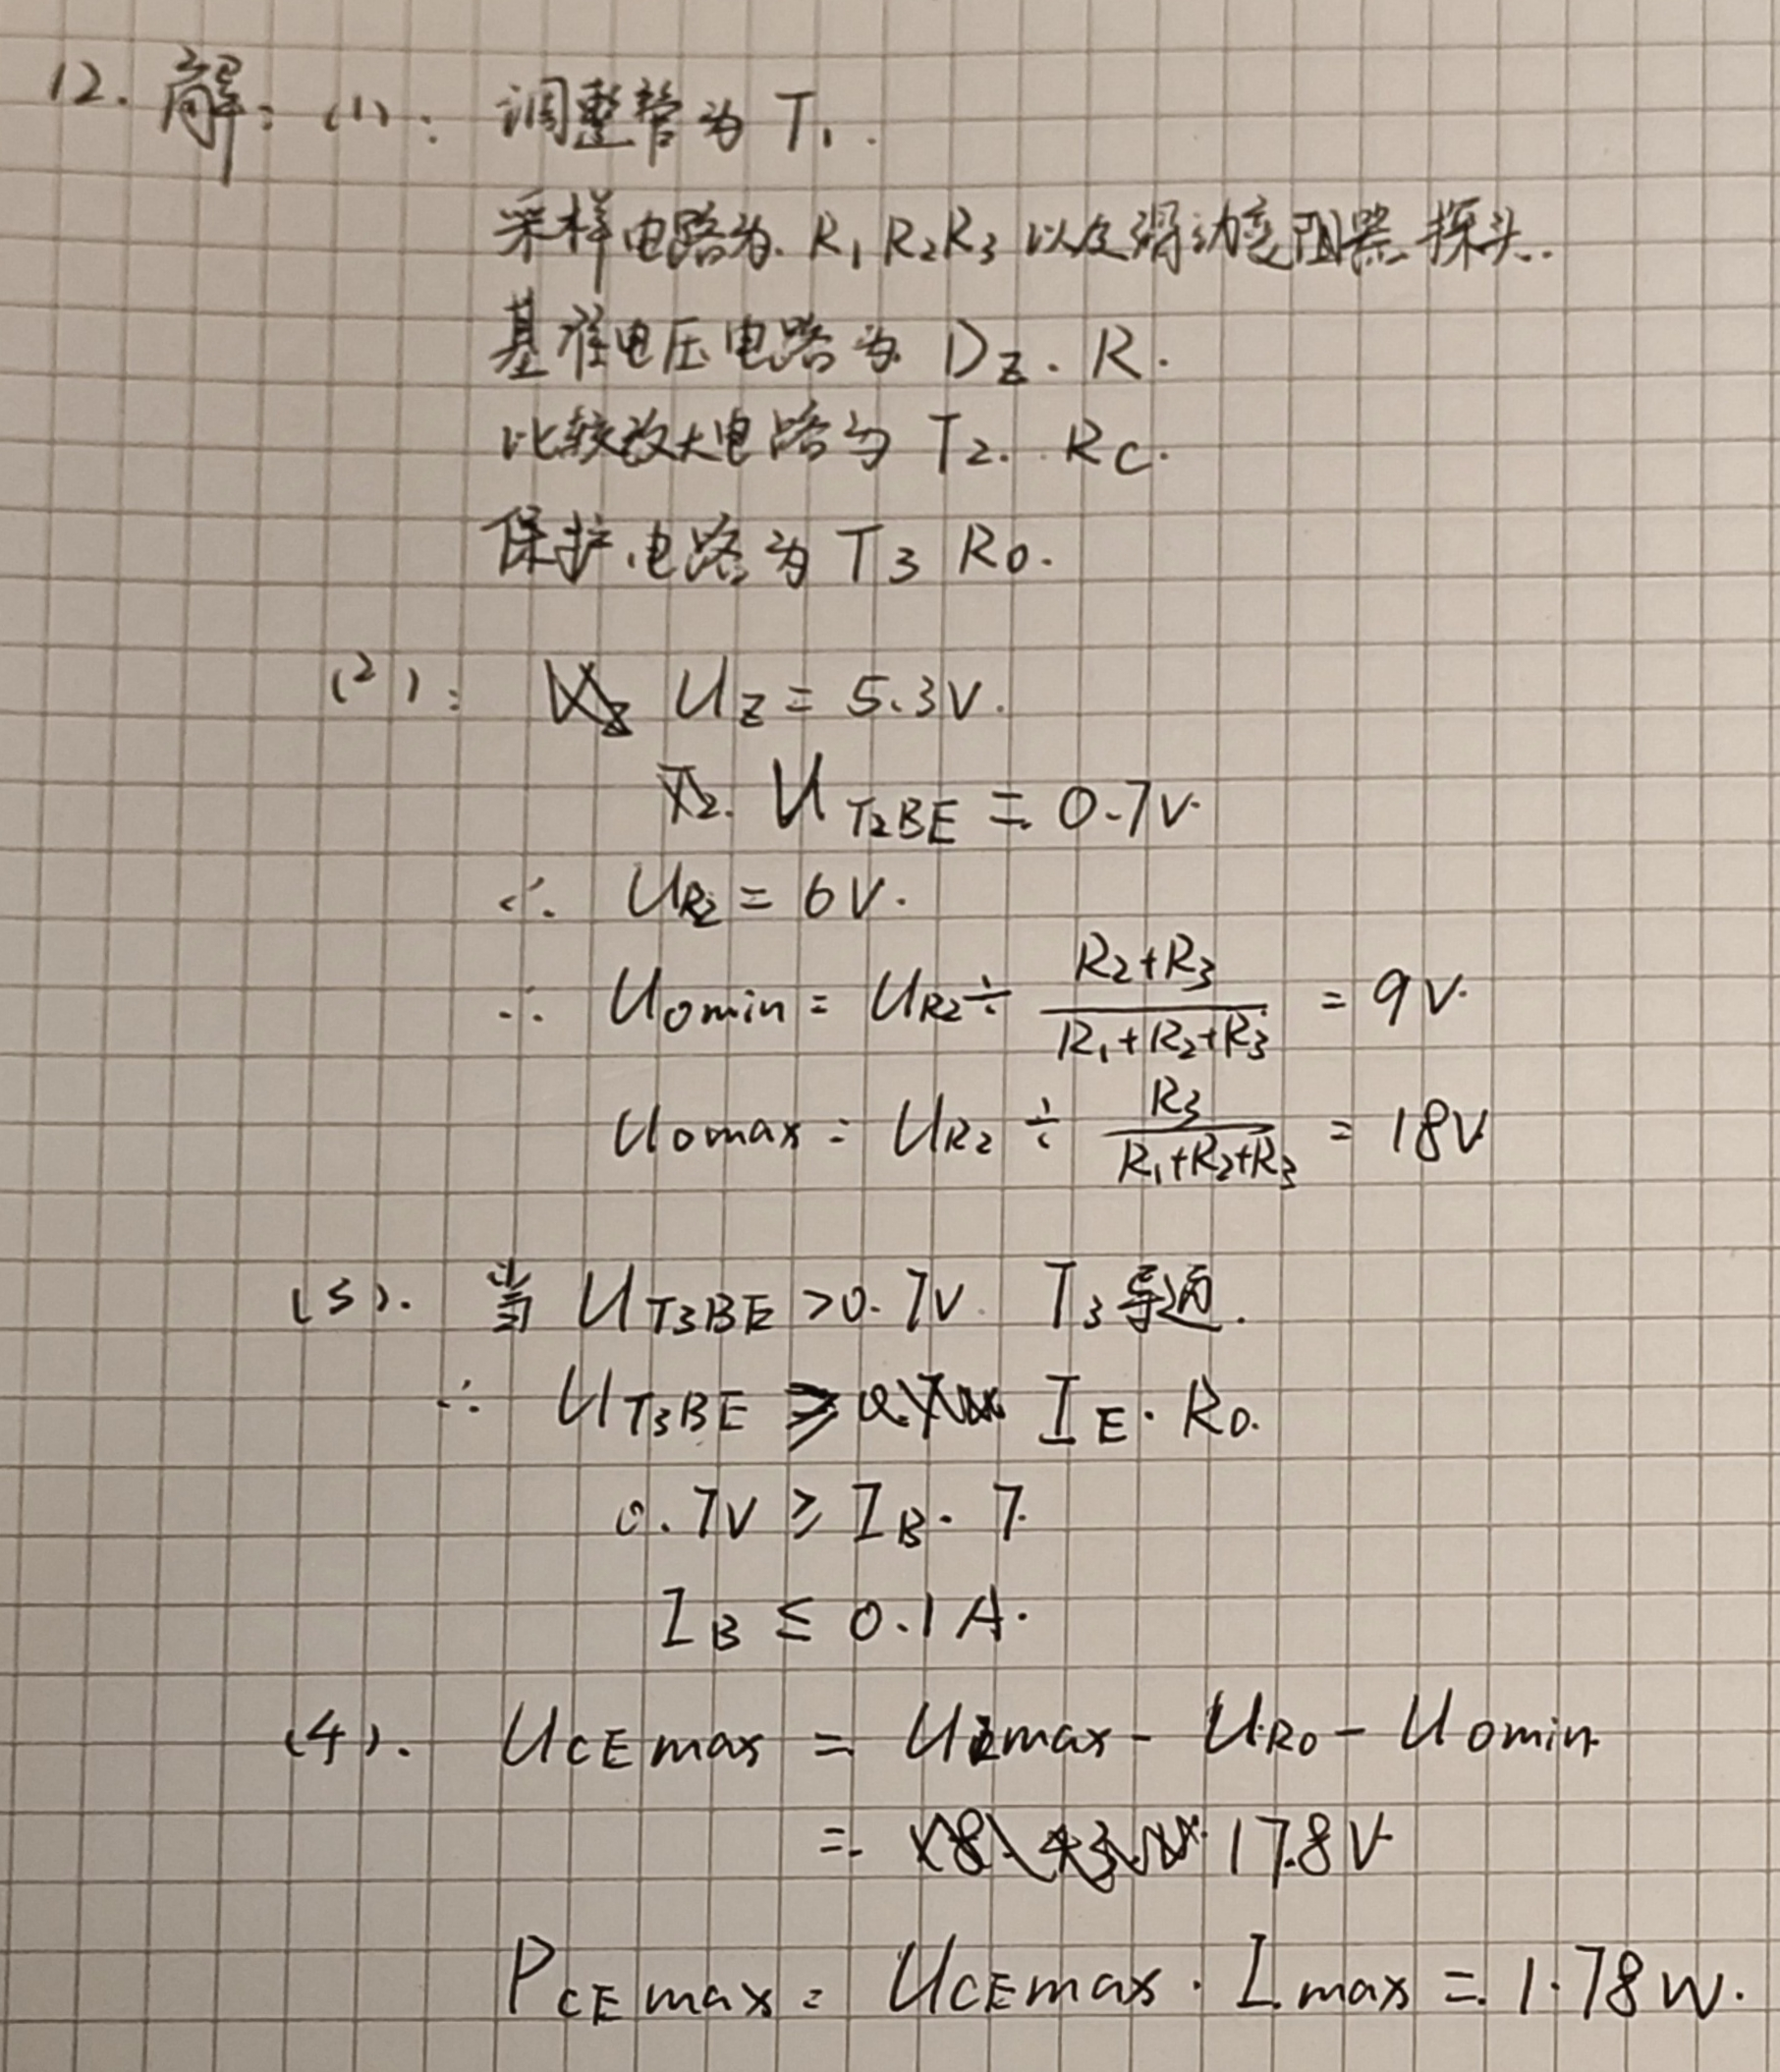 12. 解: (1): 调整管为 T₁.
采样电路为. R₁ R₂R₃ 以及滑动变阻器探头.
基准电压电路为 D_Z. R.
比较放大电路为 T₂. Rc.
保护电路为 T₃ R₀.
(2): U_Z = 5.3V.
U_T₂BE = 0.7V.
∴ U_R₂ = 6V.
∴ U₀min = U_R₂ ÷ (R₂+R₃)/(R₁+R₂+R₃) = 9V.
U₀max = U_R₂ ÷ R₃/(R₁+R₂+R₃) = 18V
(3). 当 U_T₃BE >0.7V. T₃导通.
∴ U_T₃BE ≥ I_E · R₀.
0.7V ≥ I_B · 7.
I_B ≤ 0.1A.
(4). U_CEmax = Umax - U_R₀ - U₀min
= 17.8V
P_CEmax = U_CEmax · I_max = 1.78W.